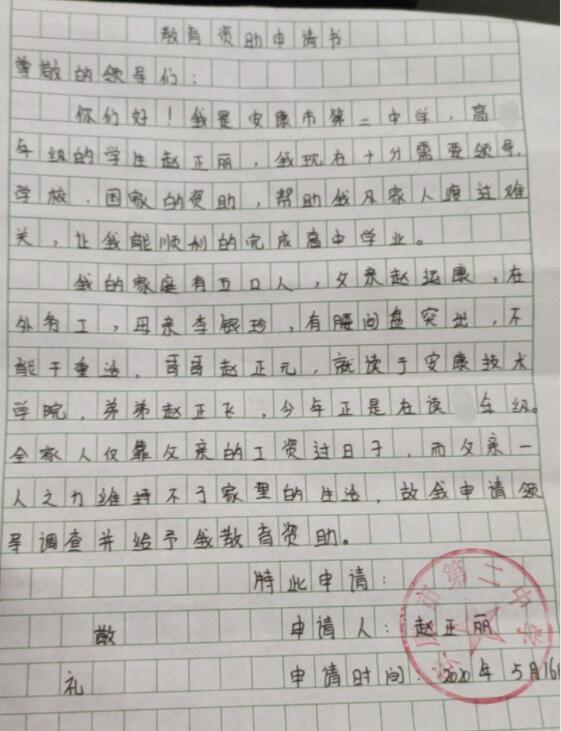 教育资助申请书
尊敬的领导们：
你们好！我是安康市第二中学，高
年级的学生赵正丽，我现在十分需要领导，
学校，国家的资助，帮助我及家人渡过难
关，让我能顺利的完成高中学业。
我的家庭有五口人，父亲赵运康，在
外务工，母亲李银珍，有腰间盘突出，不
能干重活，哥哥赵正元，就读于安康技术
学院，弟弟赵正飞，今年正是在读 年级。
全家人仅靠父亲的工资过日子，而父亲一
人之力维持不了家里的生活，故我申请领
导调查并给予我教育资助。
特此申请：
敬 申请人：赵正丽
礼 申请时间：2020年5月16日
市第二中学